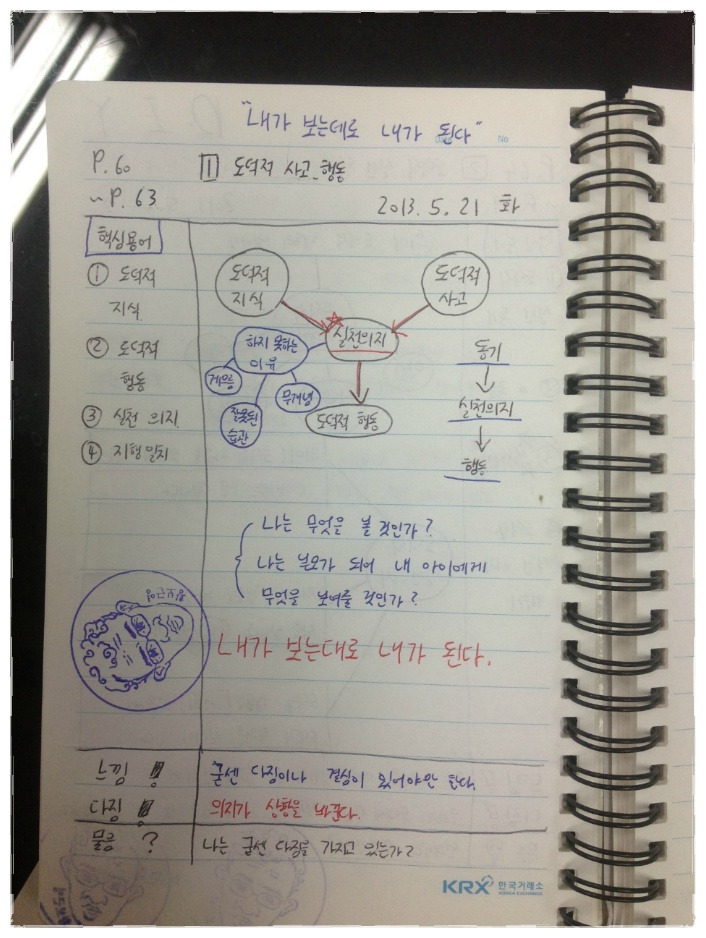 "내가 보는데로 내가 된다"
No
P.60
~P.63
1 도덕적 사고_행동
2013. 5. 21 화
핵심용어
① 도덕적
지식
② 도덕적
행동
③ 실천 의지
④ 지행일치
도덕적
지식
도덕적
사고
실천의지
하지 못하는
이유
게으름
잘못된
습관
무개념
도덕적 행동
동기
실천의지
행동
나는 무엇을 볼 것인가?
나는 부모가 되어 내 아이에게
무엇을 보여줄 것인가?
내가 보는대로 내가 된다.
느낌 !
다짐 !
물음 ?
굳센 다짐이나 결심이 있어야만 한다.
의지가 상황을 바꾼다.
나는 굳센 다짐을 가지고 있는가?
KRX 한국거래소
KOREA EXCHANGE